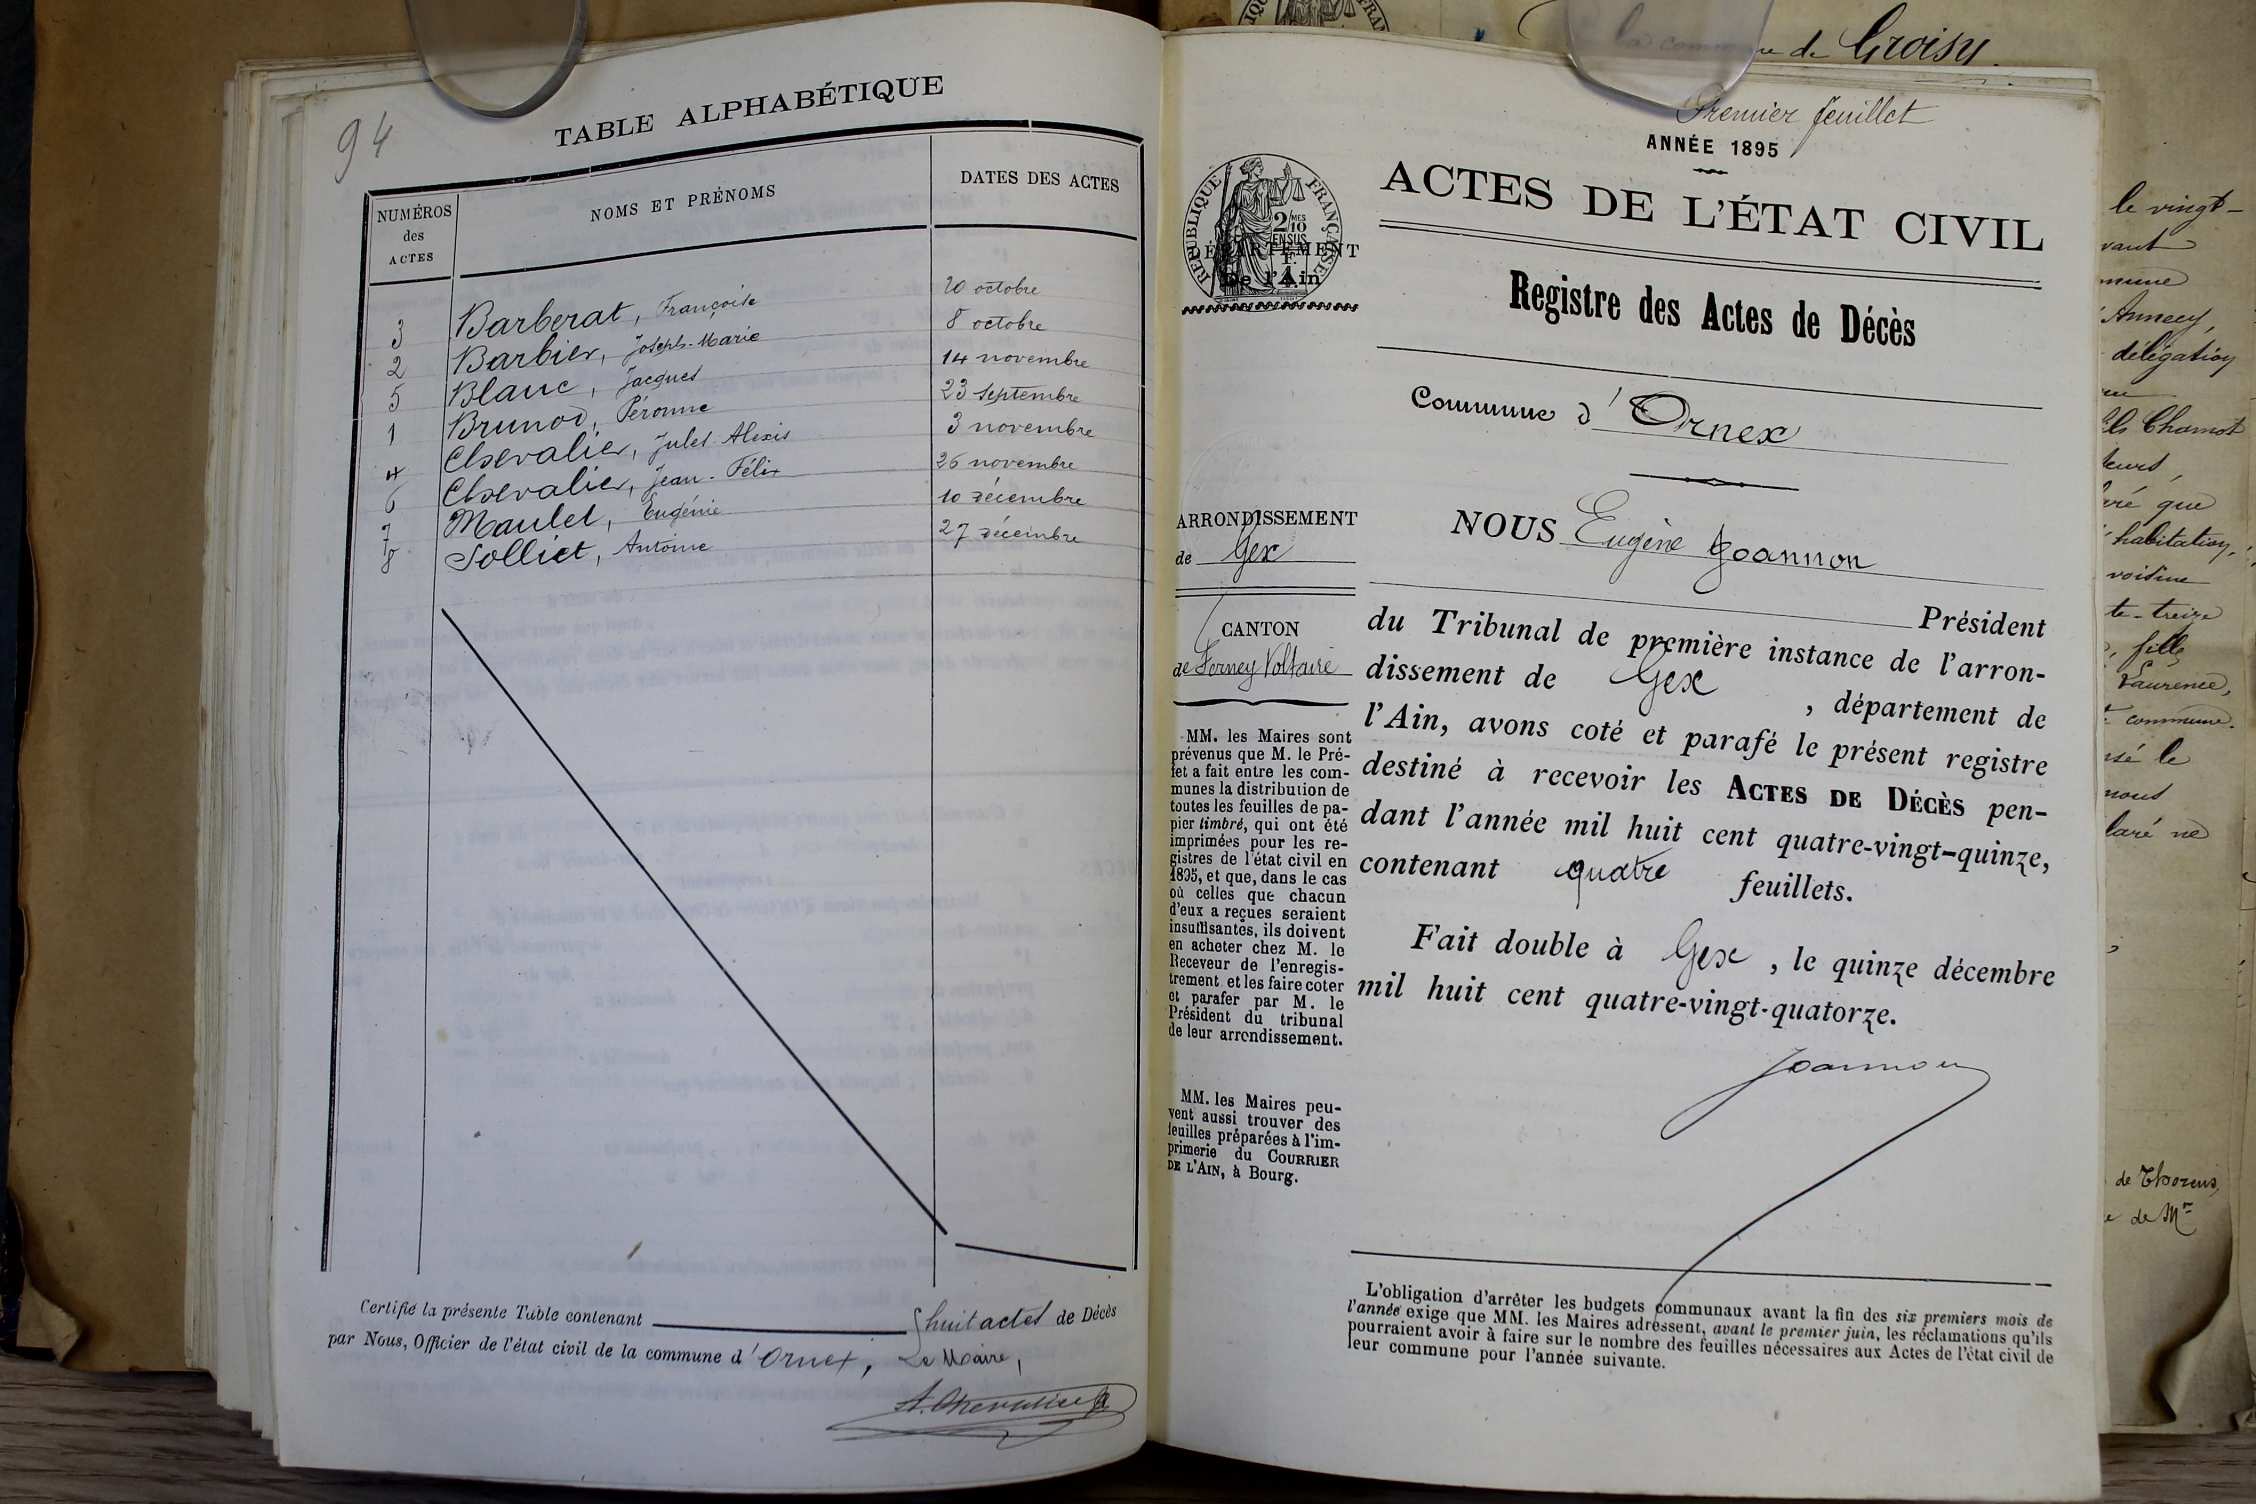 94
TABLE ALPHABÉTIQUE
NUMÉROS
des
ACTES
NOMS ET PRÉNOMS
DATES DES ACTES
3 Barberat, Françoise 20 octobre
2 Barbier, Joseph-Marie 8 octobre
5 Blanc, Jacques 14 novembre
1 Brunod, Péronne 23 septembre
4 Chevalier, Jules-Alexis 3 novembre
6 Chevalier, Jean-Félix 26 novembre
7 Maulet, Eugénie 10 décembre
8 Solliet, Antoine 27 décembre
Certifié la présente Table contenant huit actes de Décès
par Nous, Officier de l'état civil de la commune d'Ornex, Le Maire,
A. Chevalier
la commune de Groisy.
Premier feuillet
ANNÉE 1895
ACTES DE L'ÉTAT CIVIL
RÉPUBLIQUE FRANÇAISE
2/10 MES
EN SUS
F.
1
DÉPARTEMENT
De l'Ain
Registre des Actes de Décès
Commune d'Ornex
ARRONDISSEMENT
de Gex
CANTON
de Ferney Voltaire
MM. les Maires sont
prévenus que M. le Pré-
fet a fait entre les com-
munes la distribution de
toutes les feuilles de pa-
pier timbré, qui ont été
imprimées pour les re-
gistres de l'état civil en
1895, et que, dans le cas
où celles que chacun
d'eux a reçues seraient
insuffisantes, ils doivent
en acheter chez M. le
Receveur de l'enregis-
trement et les faire coter
et parafer par M. le
Président du tribunal
de leur arrondissement.
MM. les Maires peu-
vent aussi trouver des
feuilles préparées à l'im-
primerie du COURRIER
DE L'AIN, à Bourg.
NOUS Eugène Joannon
Président
du Tribunal de première instance de l'arron-
dissement de Gex, département de
l'Ain, avons coté et parafé le présent registre
destiné à recevoir les ACTES DE DÉCÈS pen-
dant l'année mil huit cent quatre-vingt-quinze,
contenant quatre feuillets.
Fait double à Gex, le quinze décembre
mil huit cent quatre-vingt-quatorze.
Joannon
L'obligation d'arrêter les budgets communaux avant la fin des six premiers mois de
l'année exige que MM. les Maires adressent, avant le premier juin, les réclamations qu'ils
pourraient avoir à faire sur le nombre des feuilles nécessaires aux Actes de l'état civil de
leur commune pour l'année suivante.
le vingt-
Annecy,
délégation
Chamot
que
habitation,
voisine
te-treize
fille
Laurence,
commune.
le
nous
ne
de Thorens,
de Mr